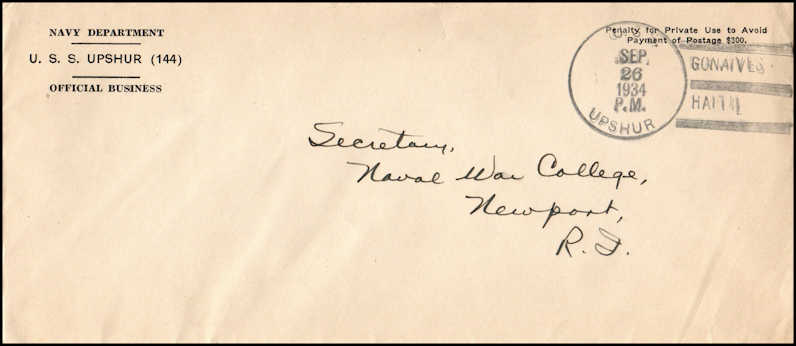 NAVY DEPARTMENT
U. S. S. UPSHUR (144)
OFFICIAL BUSINESS
Penalty for Private Use to Avoid
Payment of Postage $300.
SEP.
26
1934
P.M.
UPSHUR
GONAIVES
HAITI
Secretary,
Naval War College,
Newport,
R. I.